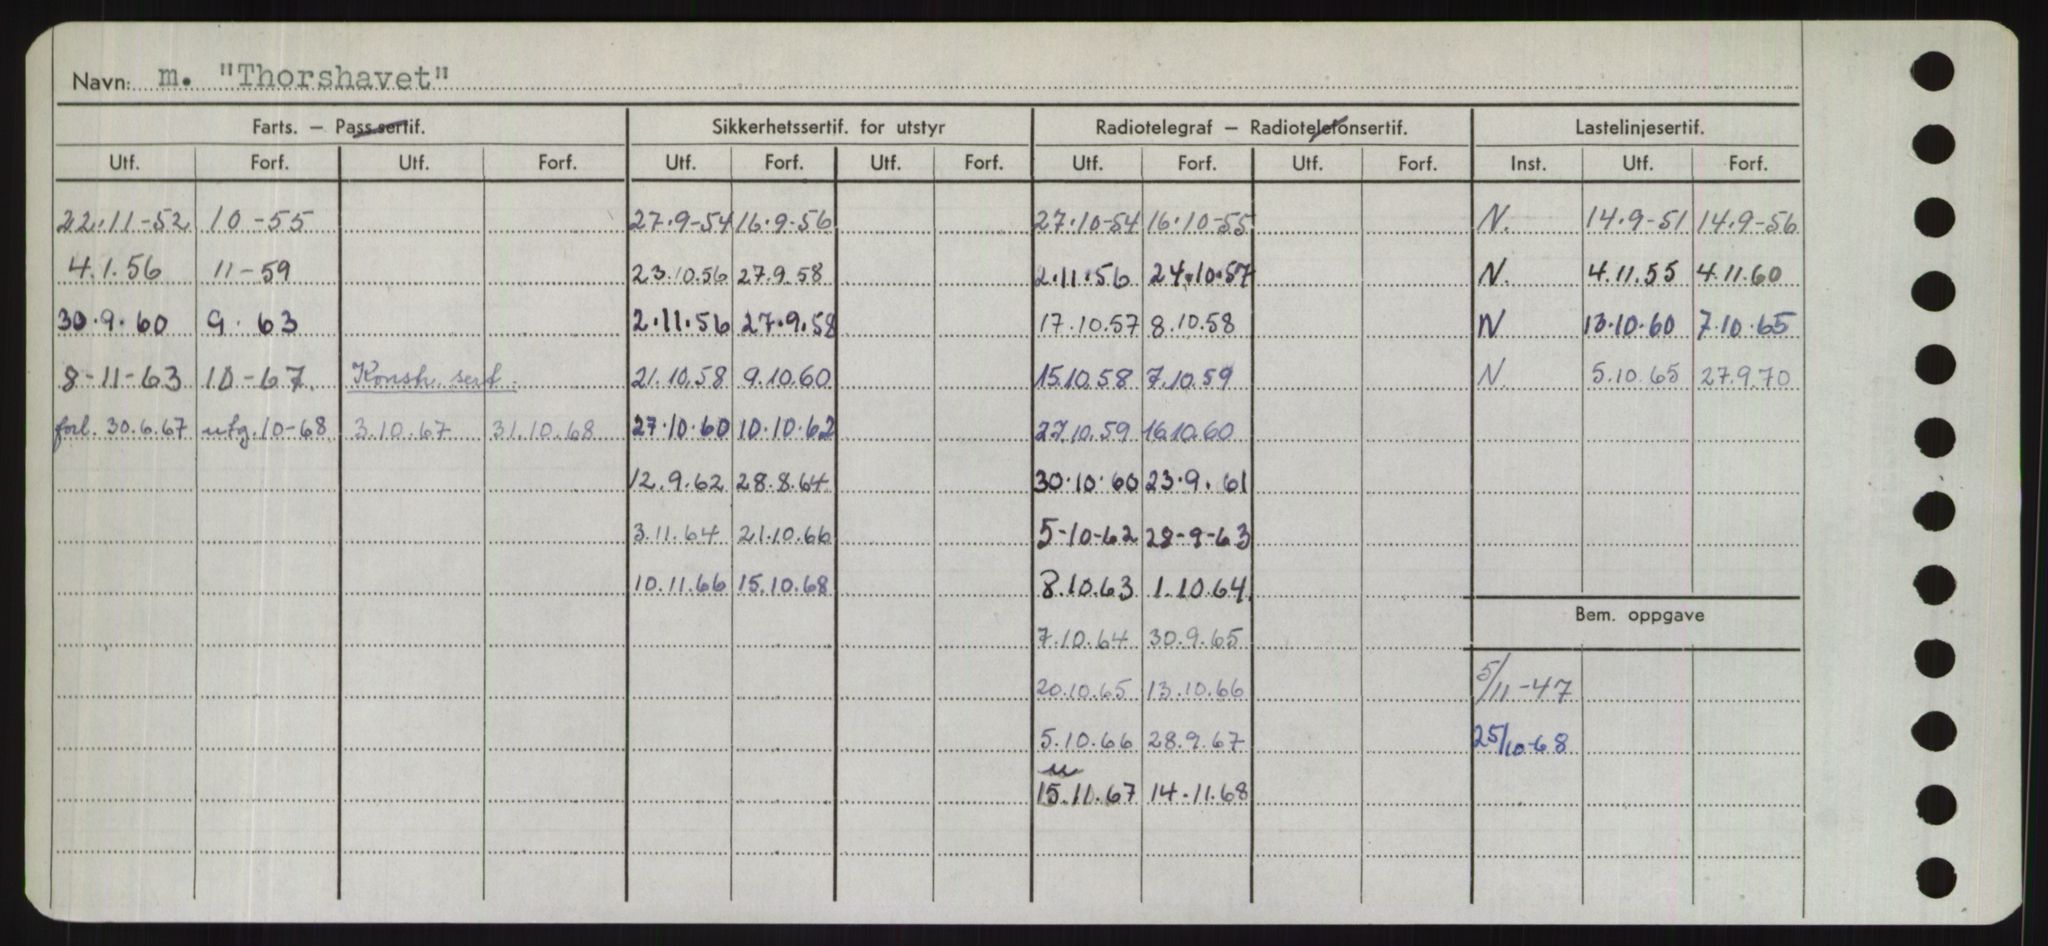 Navn: m. "Thorshavet"
Farts. – Pass.sertif. Sikkerhetssertif. for utstyr Radiotelegraf – Radiotelefonsertif. Lastelinjesertif.
Utf. Forf. Utf. Forf. Utf. Forf. Utf. Forf. Utf. Forf. Utf. Forf. Inst. Utf. Forf.
22.11-52 10-55 27.9-54 16.9-56 27.10-54 16.10-55 N. 14.9-51 14.9-56
4.1.56 11-59 23.10.56 27.9.58 2.11.56 24.10.57 N. 4.11.55 4.11.60
30.9.60 9.63 2.11.56 27.9.58 17.10.57 8.10.58 N 13.10.60 7.10.65
8-11-63 10-67. Konstr. sert. 21.10.58 9.10.60 15.10.58 7.10.59 N. 5.10.65 27.9.70
forl. 30.6.67 utg. 10-68 3.10.67 31.10.68 27.10.60 10.10.62 27.10.59 16.10.60
12.9.62 28.8.64 30.10.60 23.9.61
3.11.64 21.10.66 5-10-62 28-9-63
10.11.66 15.10.68 8.10.63 1.10.64
Bem. oppgave
7.10.64 30.9.65
20.10.65 13.10.66 5/11-47
5.10.66 28.9.67 25/10-68
u
15.11.67 14.11.68